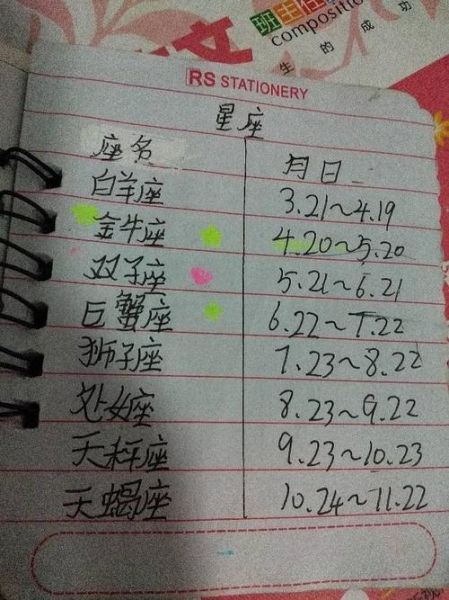 班主任
composition
生的成功
RS STATIONERY
星座
座名 月日
白羊座 3.21~4.19
金牛座 4.20~5.20
双子座 5.21~6.21
巨蟹座 6.22~7.22
狮子座 7.23~8.22
处女座 8.23~9.22
天秤座 9.23~10.23
天蝎座 10.24~11.22